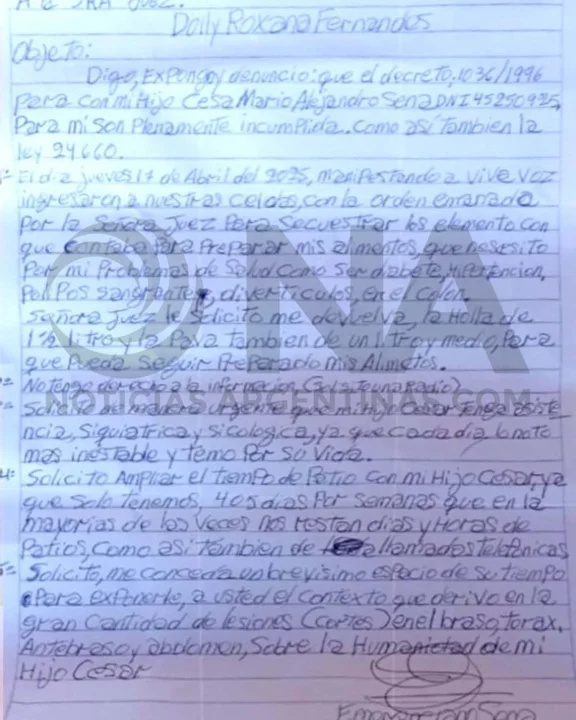 A LA SRA JUEZ.
Dolly Roxana Fernandos
Objeto:
Digo, Expongo y denuncio: que el decreto, 1036/1996
para con mi Hijo Cesa Mario Alejandro Sena DNI 45250975,
Para mi Son Plenamente incumplida. Como así también la
ley 24660.
El día jueves 17 de Abril del 2025, manifestando a vive voz
ingresaron a nuestras celdas, con la orden emanada
Por la Señora Juez Para Secuestrar los elemento con
que Contaba para Preparar mis alimentos, que nesesito
Por mi Problemas de Salud Como Ser diabete, Hipertencion,
PoliPos sangrante, diverticulos, en el Colon.
Señora Juez le Solicito me devuelva, la Holla de
1½ litro y la Pava tambien de un litro y medio, Para
que Pueda Seguir Preparado mis Alimetos.
No tengo derecho a la informacion, (Solisito una Radio)
Solicito de manera Urgente que mi Hijo Cesar tenga asiste
ncia, Siquiatrica y Sicologica, ya que Cada dia lo noto
mas inestable y temo Por Su Vida.
4= Solicito Ampliar el tiempo de Patio con mi Hijo Cesar, ya
que Solo tenemos, 4 o 5 dias Por Semanas que en la
mayorias de las Veces nos restan dias y Horas de
Patios, Como asi tambien de llamados Telefonicas
5= Solicito, me conceda un brevisimo espacio de Su tiempo
Para exponerle, a usted el Contexto que derivo en la
gran Cantidad de lesiones (Cortes) en el braso, torax,
Antebraso y abdomen, Sobre la Humanidad de mi
Hijo Cesar
ONA
NOTICIAS ARGENTINAS.COM
Sena